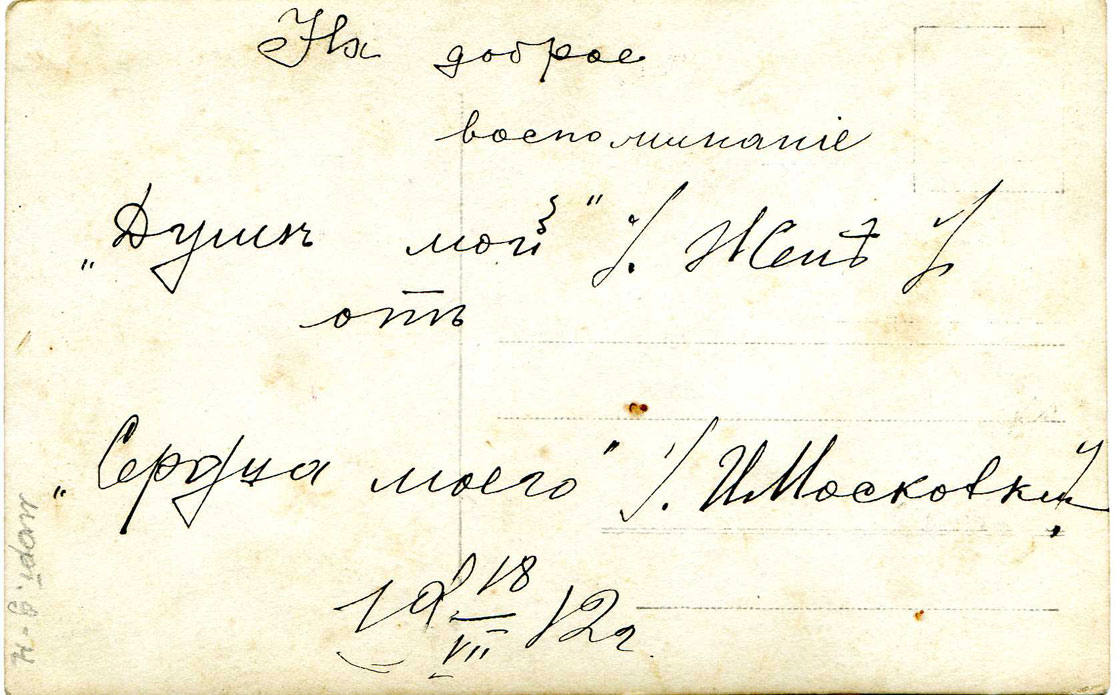 На доброе
воспоминаніе
„Душѣ моей" /. Женѣ ./
отъ
„Сердца моего" /. И Московкин ./
19 18/VII 12 г.